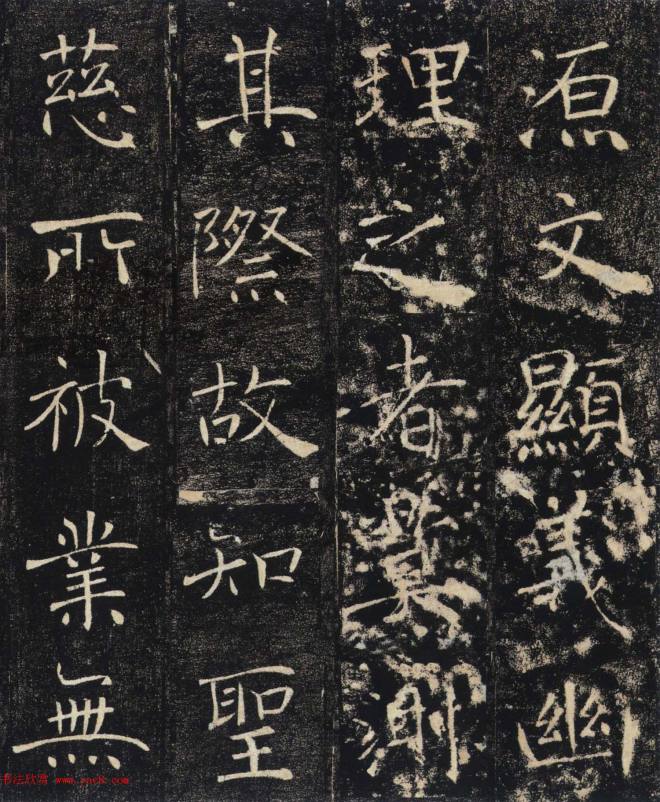 源文顯義幽
理之者莫測
其際故知聖
慈所被業無
书法欣赏 www.yac8.com